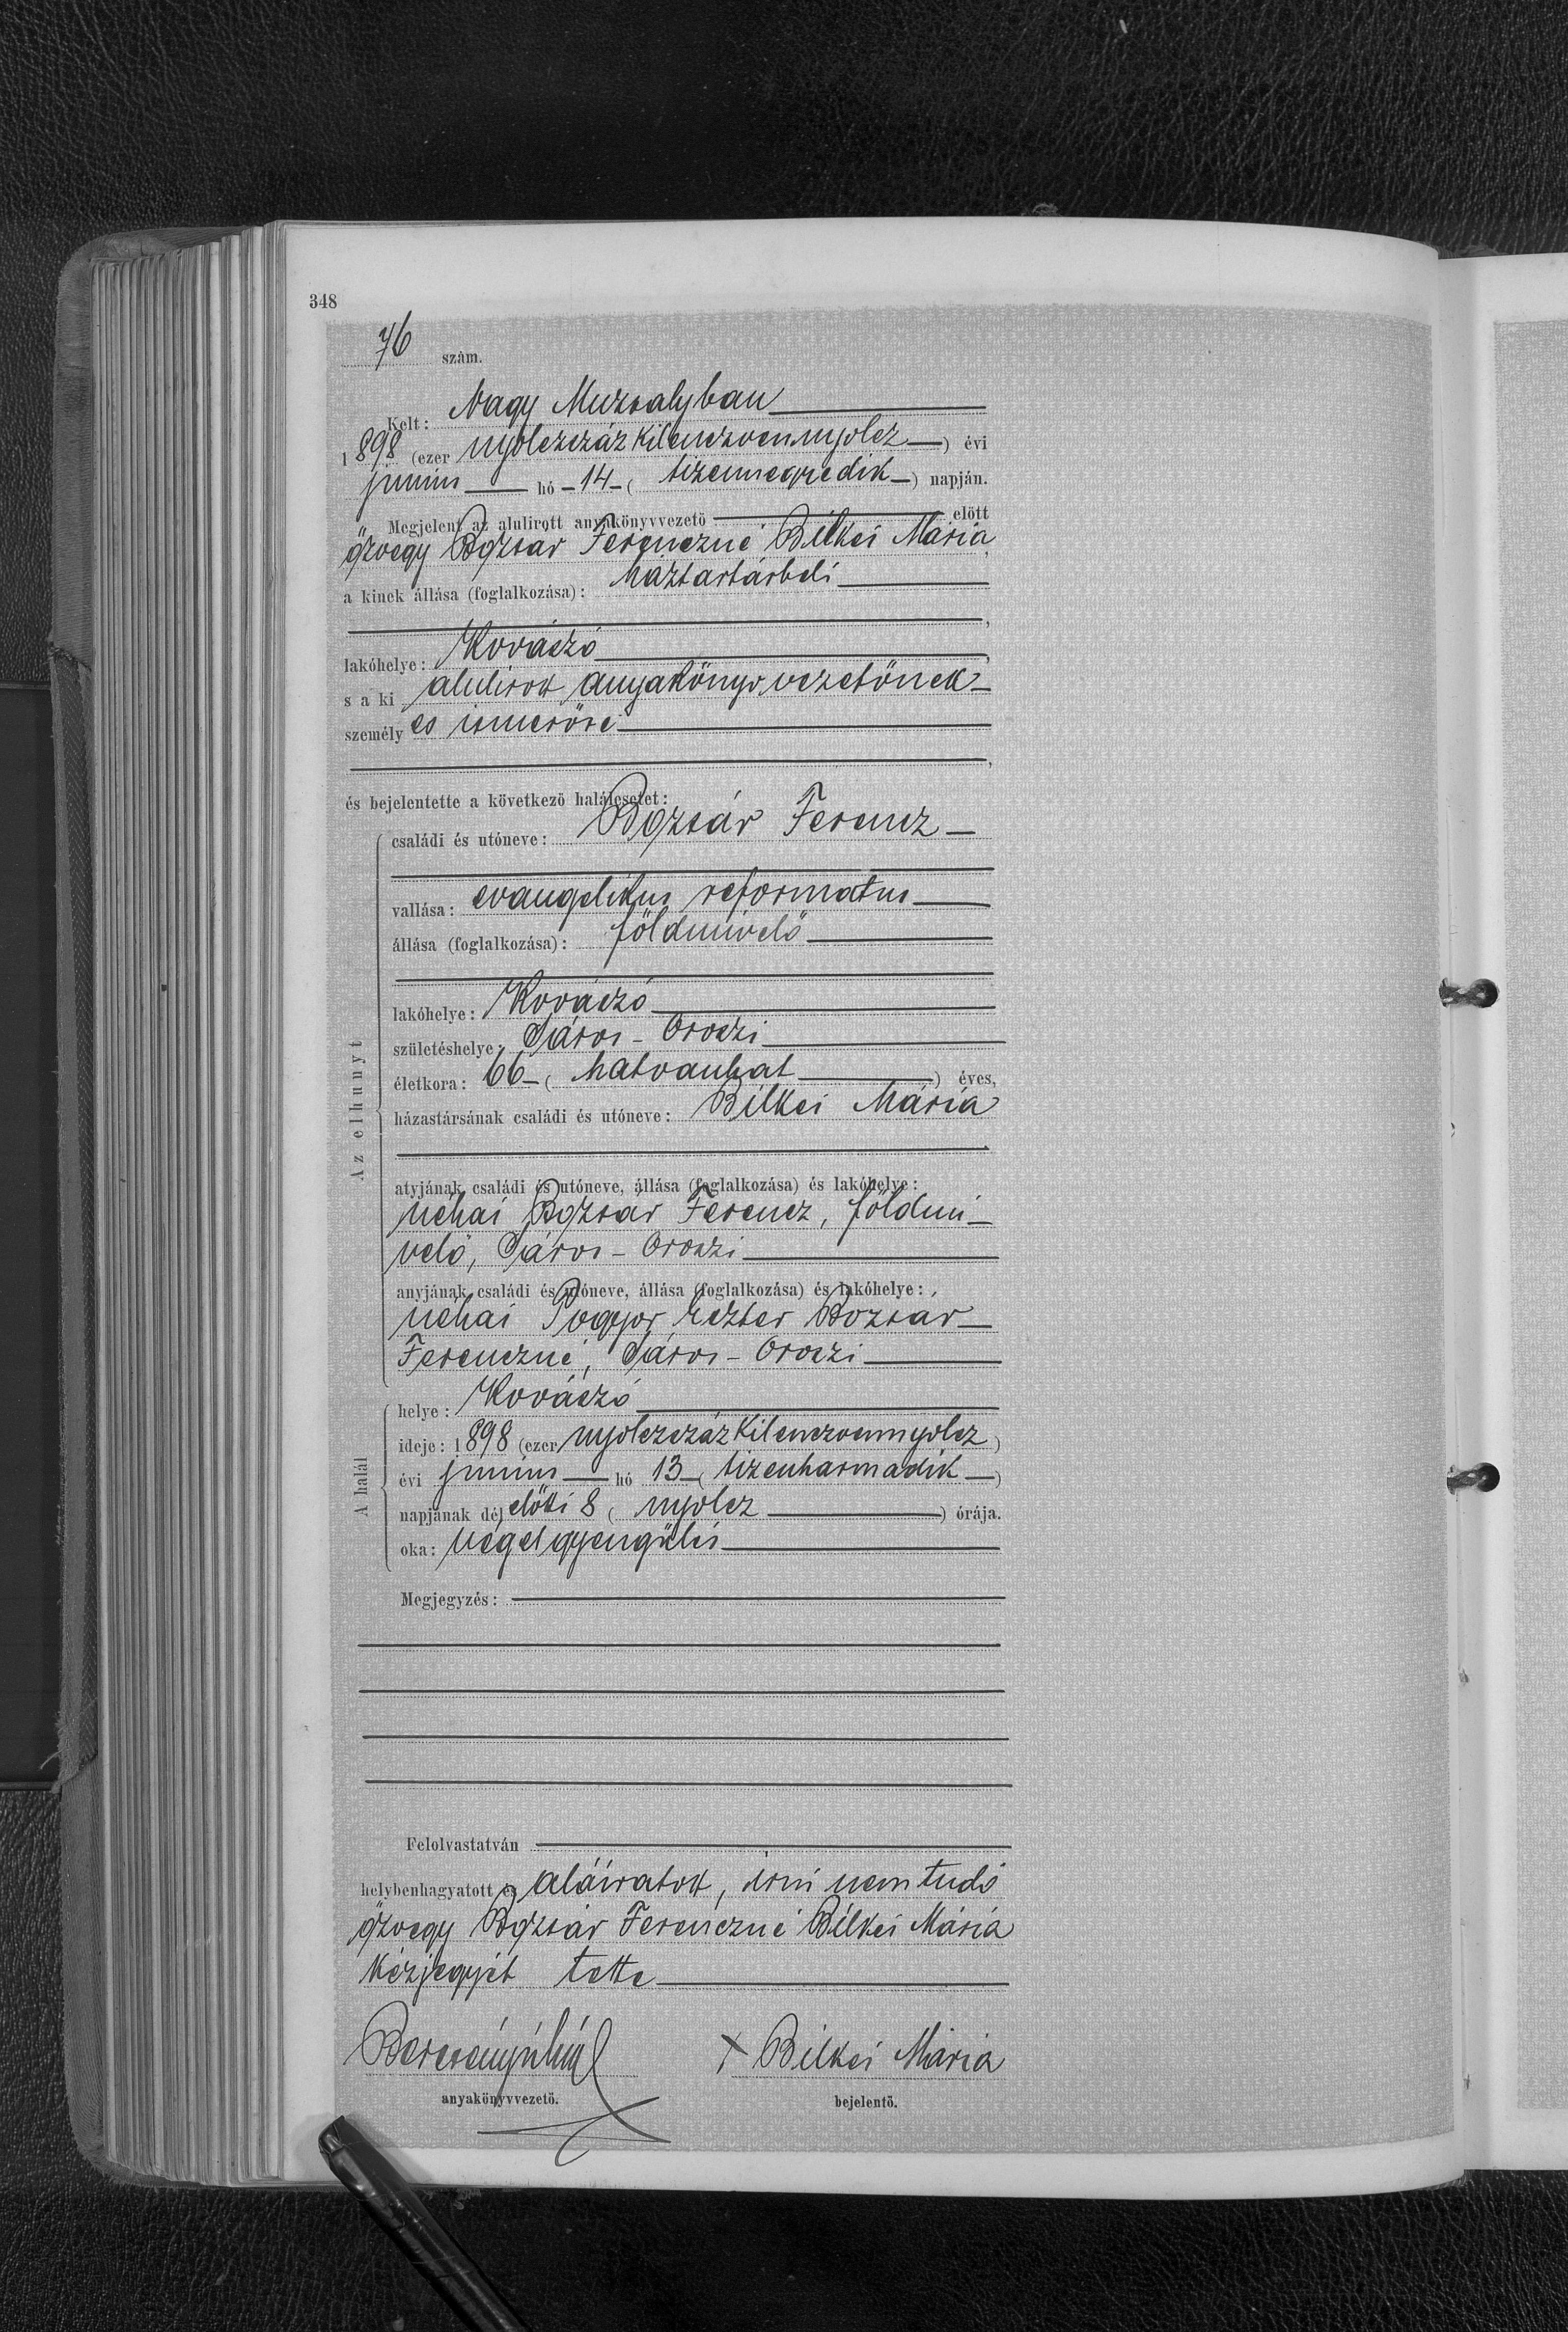 348
76 szám.
Kelt: Nagy Muzsalyban
1898 (ezer nyolczszáz kilenczvennyolcz) évi
junius hó 14 (tizennegyedik) napján.
Megjelent az alulirott anyakönyvvezető előtt
özvegy Bozsár Ferenczné Bilkei Mária,
a kinek állása (foglalkozása): háztartásbeli
lakóhelye: Kovászó,
s a ki alulirott anyakönyvvezetőnek
személyes ismerőse
és bejelentette a következő halálesetet:
Az elhunyt
családi és utóneve: Bozsár Ferencz
vallása: evangelikus reformatus
állása (foglalkozása): földmivelő
lakóhelye: Kovászó
születéshelye: Sáros-Oroszi
életkora: 66 (hatvanhat) éves,
házastársának családi és utóneve: Bilkei Mária
atyjának családi és utóneve, állása (foglalkozása) és lakóhelye:
néhai Bozsár Ferencz, földmi-
velő, Sáros-Oroszi
anyjának családi és utóneve, állása (foglalkozása) és lakóhelye:
néhai Eszter Bozsár
Ferenczné, Sáros-Oroszi
A halál
helye: Kovászó
ideje: 1898 (ezer nyolczszáz kilenczvennyolcz)
évi junius hó 13 (tizenharmadik)
napjának délelőtti 8 (nyolcz) órája.
oka: végelgyengülés
Megjegyzés:
Felolvastatván
helybenhagyatott és aláiratott, irni nem tudó
özvegy Bozsár Ferenczné Bilkei Mária
kézjegyét tette
+ Bilkei Mária
anyakönyvvezető. bejelentő.